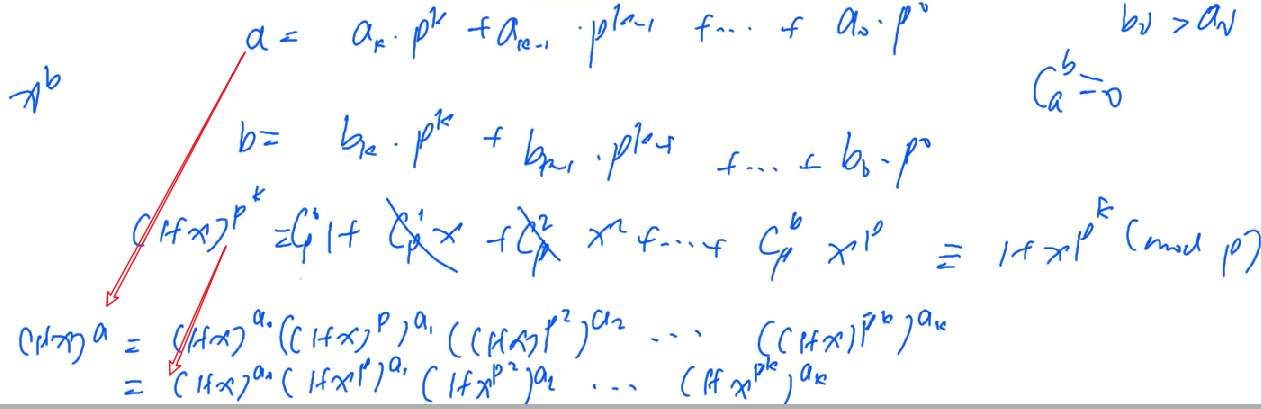 a = a_k · p^k + a_{k-1} · p^{k-1} + ... + a_0 · p^0
b_i > a_i
x^b
C_a^b = 0
b = b_k · p^k + b_{k-1} · p^{k-1} + ... + b_0 · p^0
(1+x)^{p^k} = C_p^0 1 + C_p^1 x + C_p^2 x^2 + ... + C_p^p x^p ≡ 1 + x^{p^k} (mod p)
(1+x)^a = (1+x)^{a_0} ((1+x)^p)^{a_1} ((1+x)^{p^2})^{a_2} ... ((1+x)^{p^k})^{a_k}
= (1+x)^{a_0} (1+x^p)^{a_1} (1+x^{p^2})^{a_2} ... (1+x^{p^k})^{a_k}